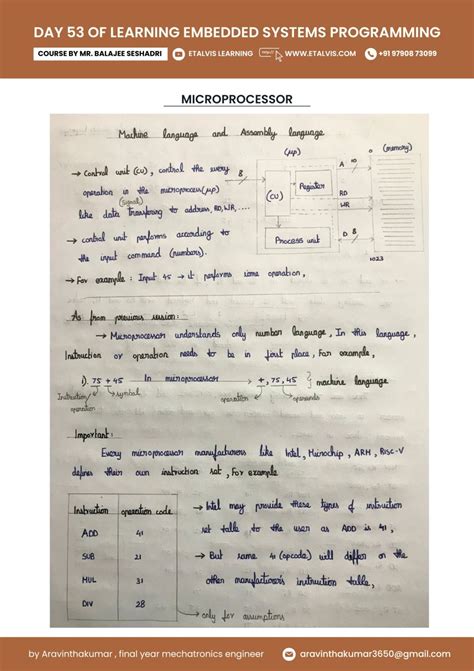 DAY 53 OF LEARNING EMBEDDED SYSTEMS PROGRAMMING
COURSE BY MR. BALAJEE SESHADRI ETALVIS LEARNING WWW.ETALVIS.COM +91 97908 73099
MICROPROCESSOR
Machine language and Assembly language
→ Control unit (CU), control the every
operation in the microprocess(μp)
(signal)
like data transfering to address, RD, WR, ....
→ control unit performs according to
the input command (numbers).
→ For example : Input 45 → it performs some operation,
(μp) (memory)
8 (CU) Register A 10 0
RD
WR
Process unit D 8
1023
As from previous session:
→ Microprocessor understands only number language, In this language,
Instruction or operation needs to be in first place, For example,
i). 75 + 45 In microprocessor → +, 75, 45 } machine language
Instruction/ symbol operation operands
operation
Important:
Every microprocessor manufacturers like Intel, Microchip, ARM, RISC-V
defines their own instruction set, For example
Instruction operation code
ADD 41
SUB 21
MUL 31
DIV 28
→ Intel may provide these types of instruction
set table to the user as ADD is 41,
→ But same 41 (opcode) will differ on the
other manufacturer's instruction table,
→ only for assumptions
by Aravinthakumar , final year mechatronics engineer aravinthakumar3650@gmail.com